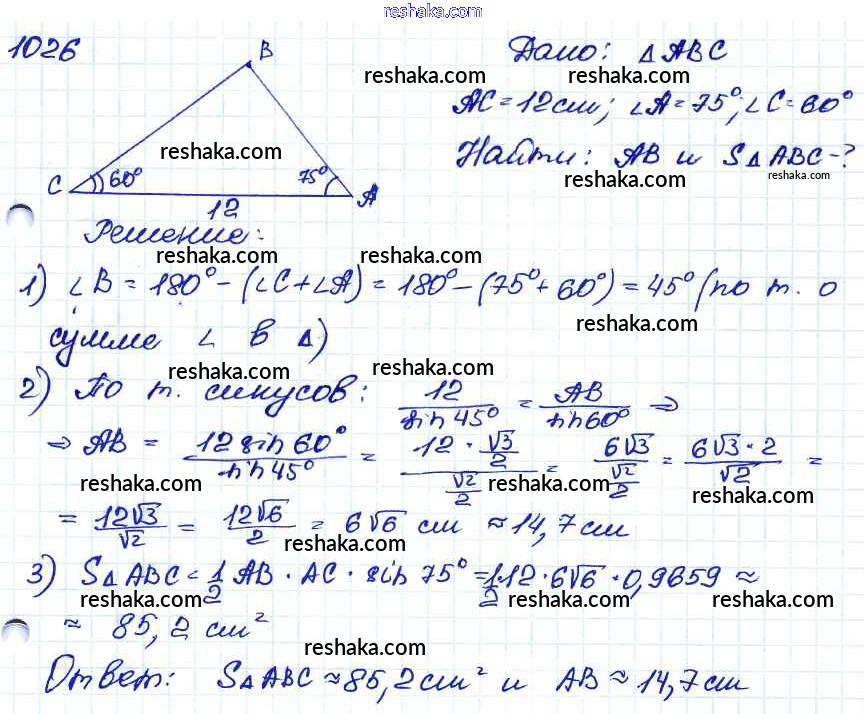 reshaka.com
1026
Дано: △ABC
reshaka.com reshaka.com
AC = 12 см; ∠A = 75°; ∠C = 60°
Найти: AB и S△ABC - ?
reshaka.com reshaka.com
B
reshaka.com
C 60° 75° A
12
Решение:
reshaka.com reshaka.com reshaka.com
1) ∠B = 180° - (∠C + ∠A) = 180° - (75° + 60°) = 45° (по т. о
reshaka.com
сумме ∠ в △)
reshaka.com reshaka.com
2) По т. синусов: 12/sin 45° = AB/sin 60° ⇒
⇒ AB = 12 sin 60°/sin 45° = (12 · √3/2)/(√2/2) = 6√3/(√2/2) = 6√3 · 2/√2 =
reshaka.com reshaka.com reshaka.com reshaka.com
= 12√3/√2 = 12√6/2 = 6√6 см ≈ 14,7 см
reshaka.com
3) S△ABC = 1/2 AB · AC · sin 75° = 1/2 · 12 · 6√6 · 0,9659 ≈
reshaka.com reshaka.com reshaka.com reshaka.com
≈ 85,2 см²
reshaka.com
Ответ: S△ABC ≈ 85,2 см² и AB ≈ 14,7 см